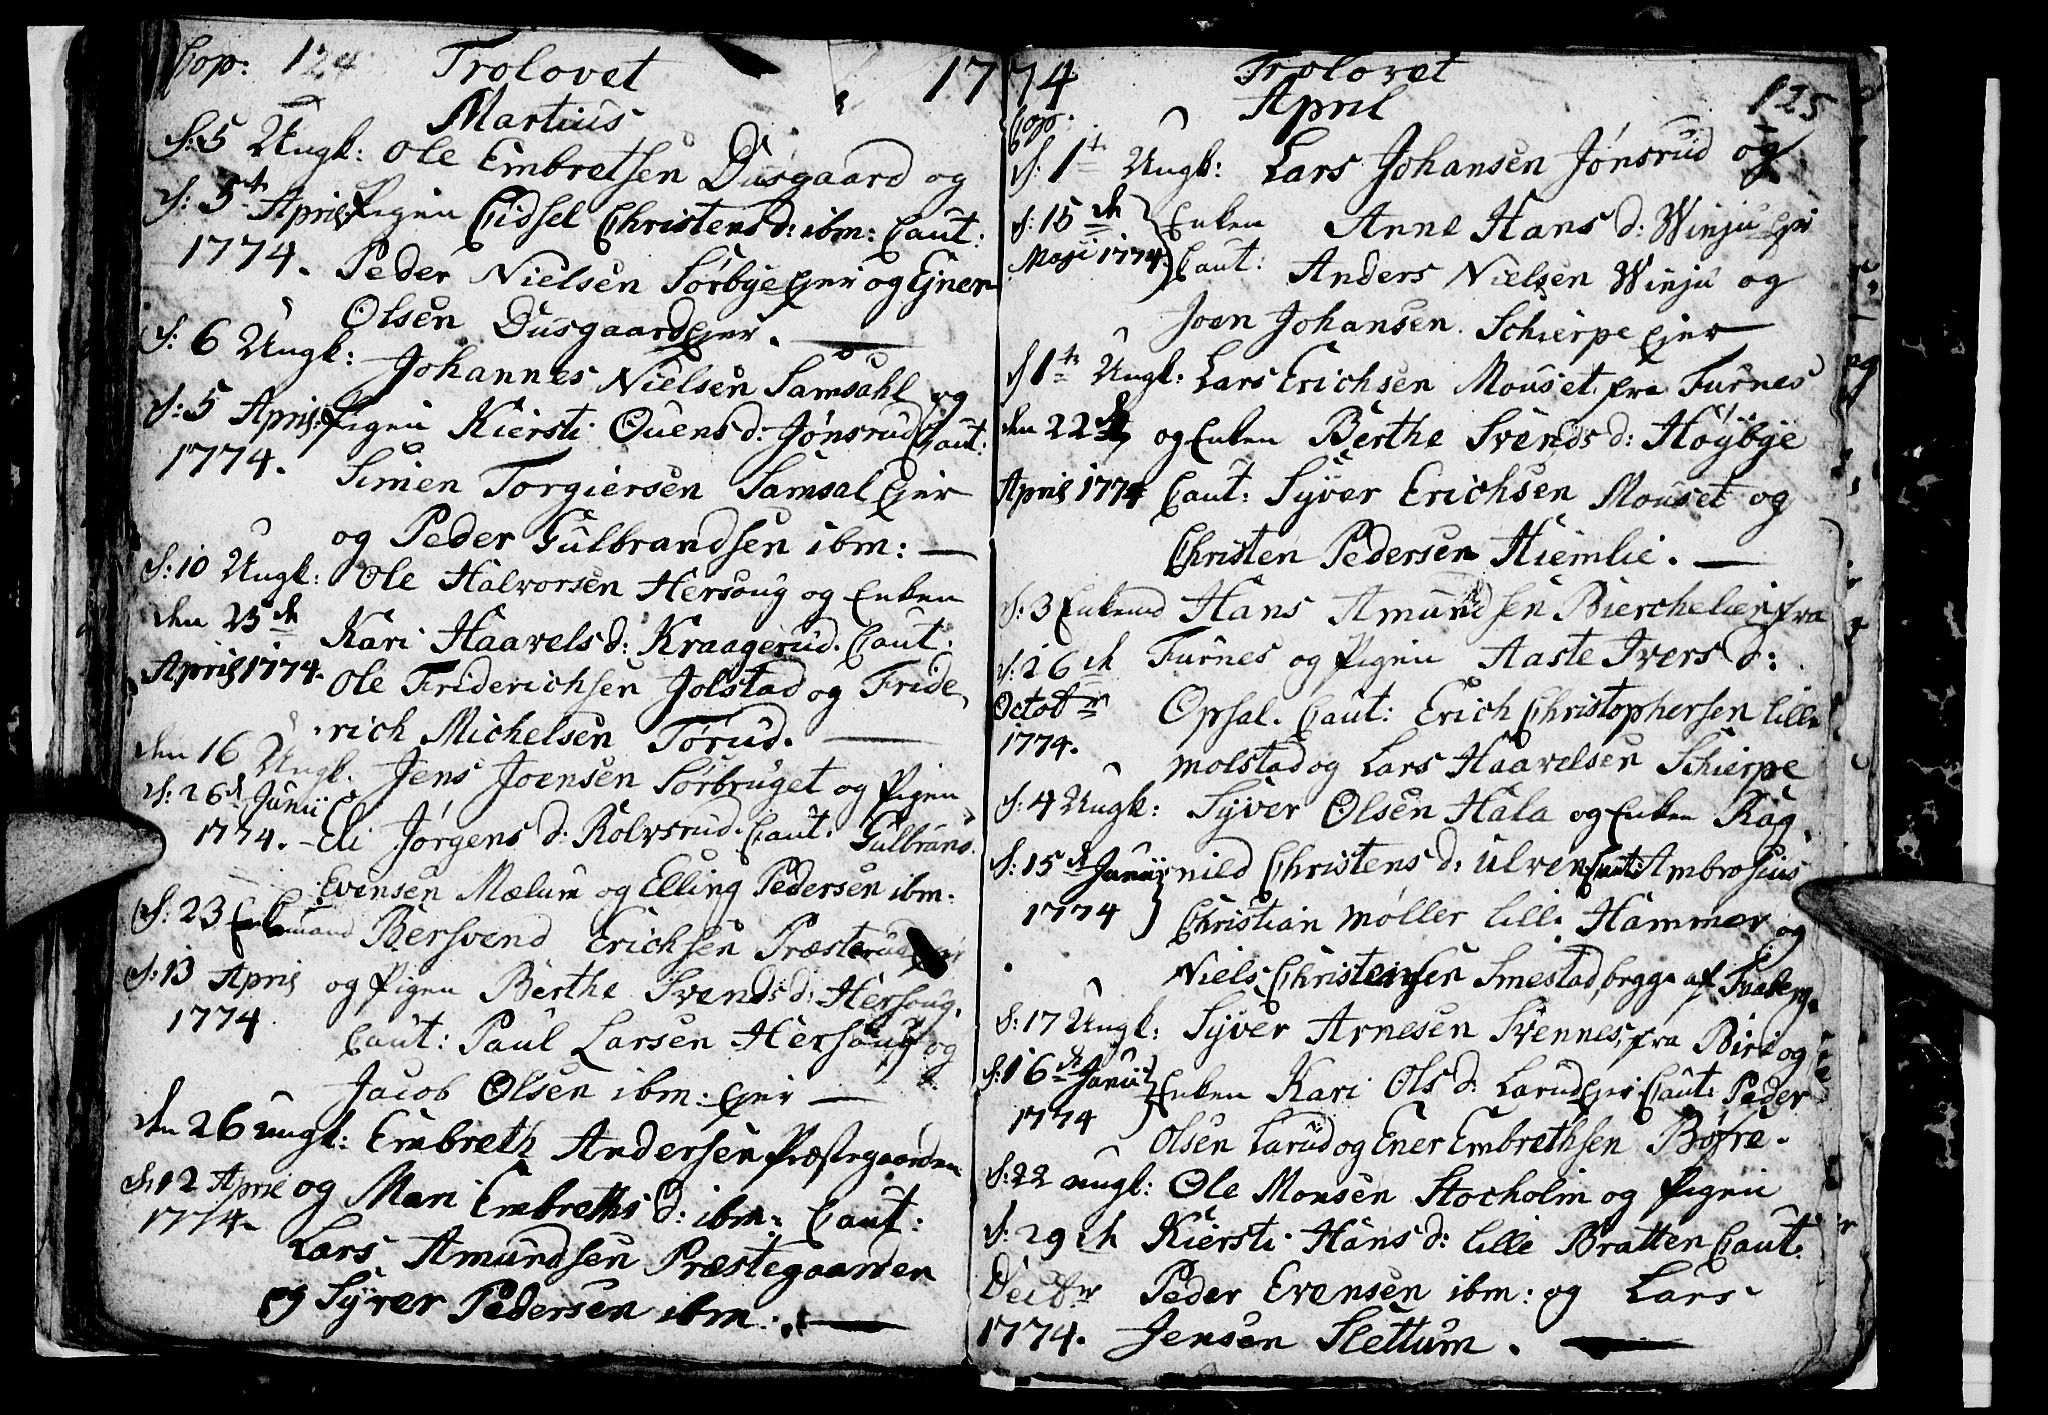 Cop: 124 Trolovet 1774
Martius
d: 5 Ungk: Ole Embretsen Dusgaard og
d: 5te April Pigen Sidsel Christens d: ibm: Caut:
1774. Peder Nielsen Sørbye Ejer og Ejner
Olsen Dusgaard Ejer.
d: 6 Ungk: Johannes Nielsen Samsahl og
d: 5 April Pigen Kiersti Ouens d: Jønsrud Caut:
1774. Simen Torgiersen Samsal Ejer
og Peder Gulbrandsen ibm:
d: 10 Ungk: Ole Halvorsen Hersoug og Enken
den 25de Kari Haavels d: Kraagerud. Caut:
April 1774. Ole Friderichsen Jolstad og Fride
rich Michelsen Torud.
den 16 Ungk. Jens Joensen Sørbruget og Pigen
d: 26de Junii Eli Jørgens d: Rolvsrud. Caut: Gulbrans
1774. Evensen Mælum og Elling Pedersen ibm.
d: 23 Enkemand Bersvend Erichsen Præsterud
d: 13 April og Pigen Berthe Svends d: Hersoug.
1774 Caut: Paul Larsen Hersoug og
Jacob Olsen ibm: Ejer
den 26 ungk: Embreth Andersen Præstegaarden
d: 12 April og Mari Embreths d: ibm: Caut:
1774. Lars Amundsen Præstegaarden
og Syver Pedersen ibm.
Trolovet
April 125
Cop:
d: 1te Ungk: Lars Johansen Jønsrud og
d: 15de Enken Anne Hans d: Winju Ejer
Maji 1774. Caut: Anders Nielsen Winju og
Joen Johansen Schierpe Ejer
d 1te Ungk: Lars Erichsen Mouset fra Furnes
den 22de og Enken Berthe Svends d: Høybye
April 1774 Caut: Syver Erichsen Mouset og
Christen Pedersen Hiemlie.
d: 3 Enkemd Hans Amundsen Bierchelien fra
d: 26de Furnes og Pigen Aaste Ivers d:
Octobr Opsal. Caut: Erich Christophersen lille
1774. molstad og Lars Haavelsen Schierpe
d: 4 Ungk: Syver Olsen Hala og Enken Rag
d: 15de Junii nild Christens d: Ulven Caut: Ambrosius
1774 Christian Møller lille Hammer og
Niels Christensen Smestad, begge af Faaberg.
d: 17 Ungk: Syver Arnesen Svennes, fra Biri og
d: 16de Junii Enken Kari Ols d: Larud Ejer Caut: Peder
1774 Olsen Larud og Ener Embrethsen Bøfre.
d: 22 ungk: Ole Monsen Stocholm og Pigen
d: 29de Kiersti Hans d: lille Bratten Caut:
Decbr Peder Evensen ibm: og Lars
1774. Jensen Slettum.